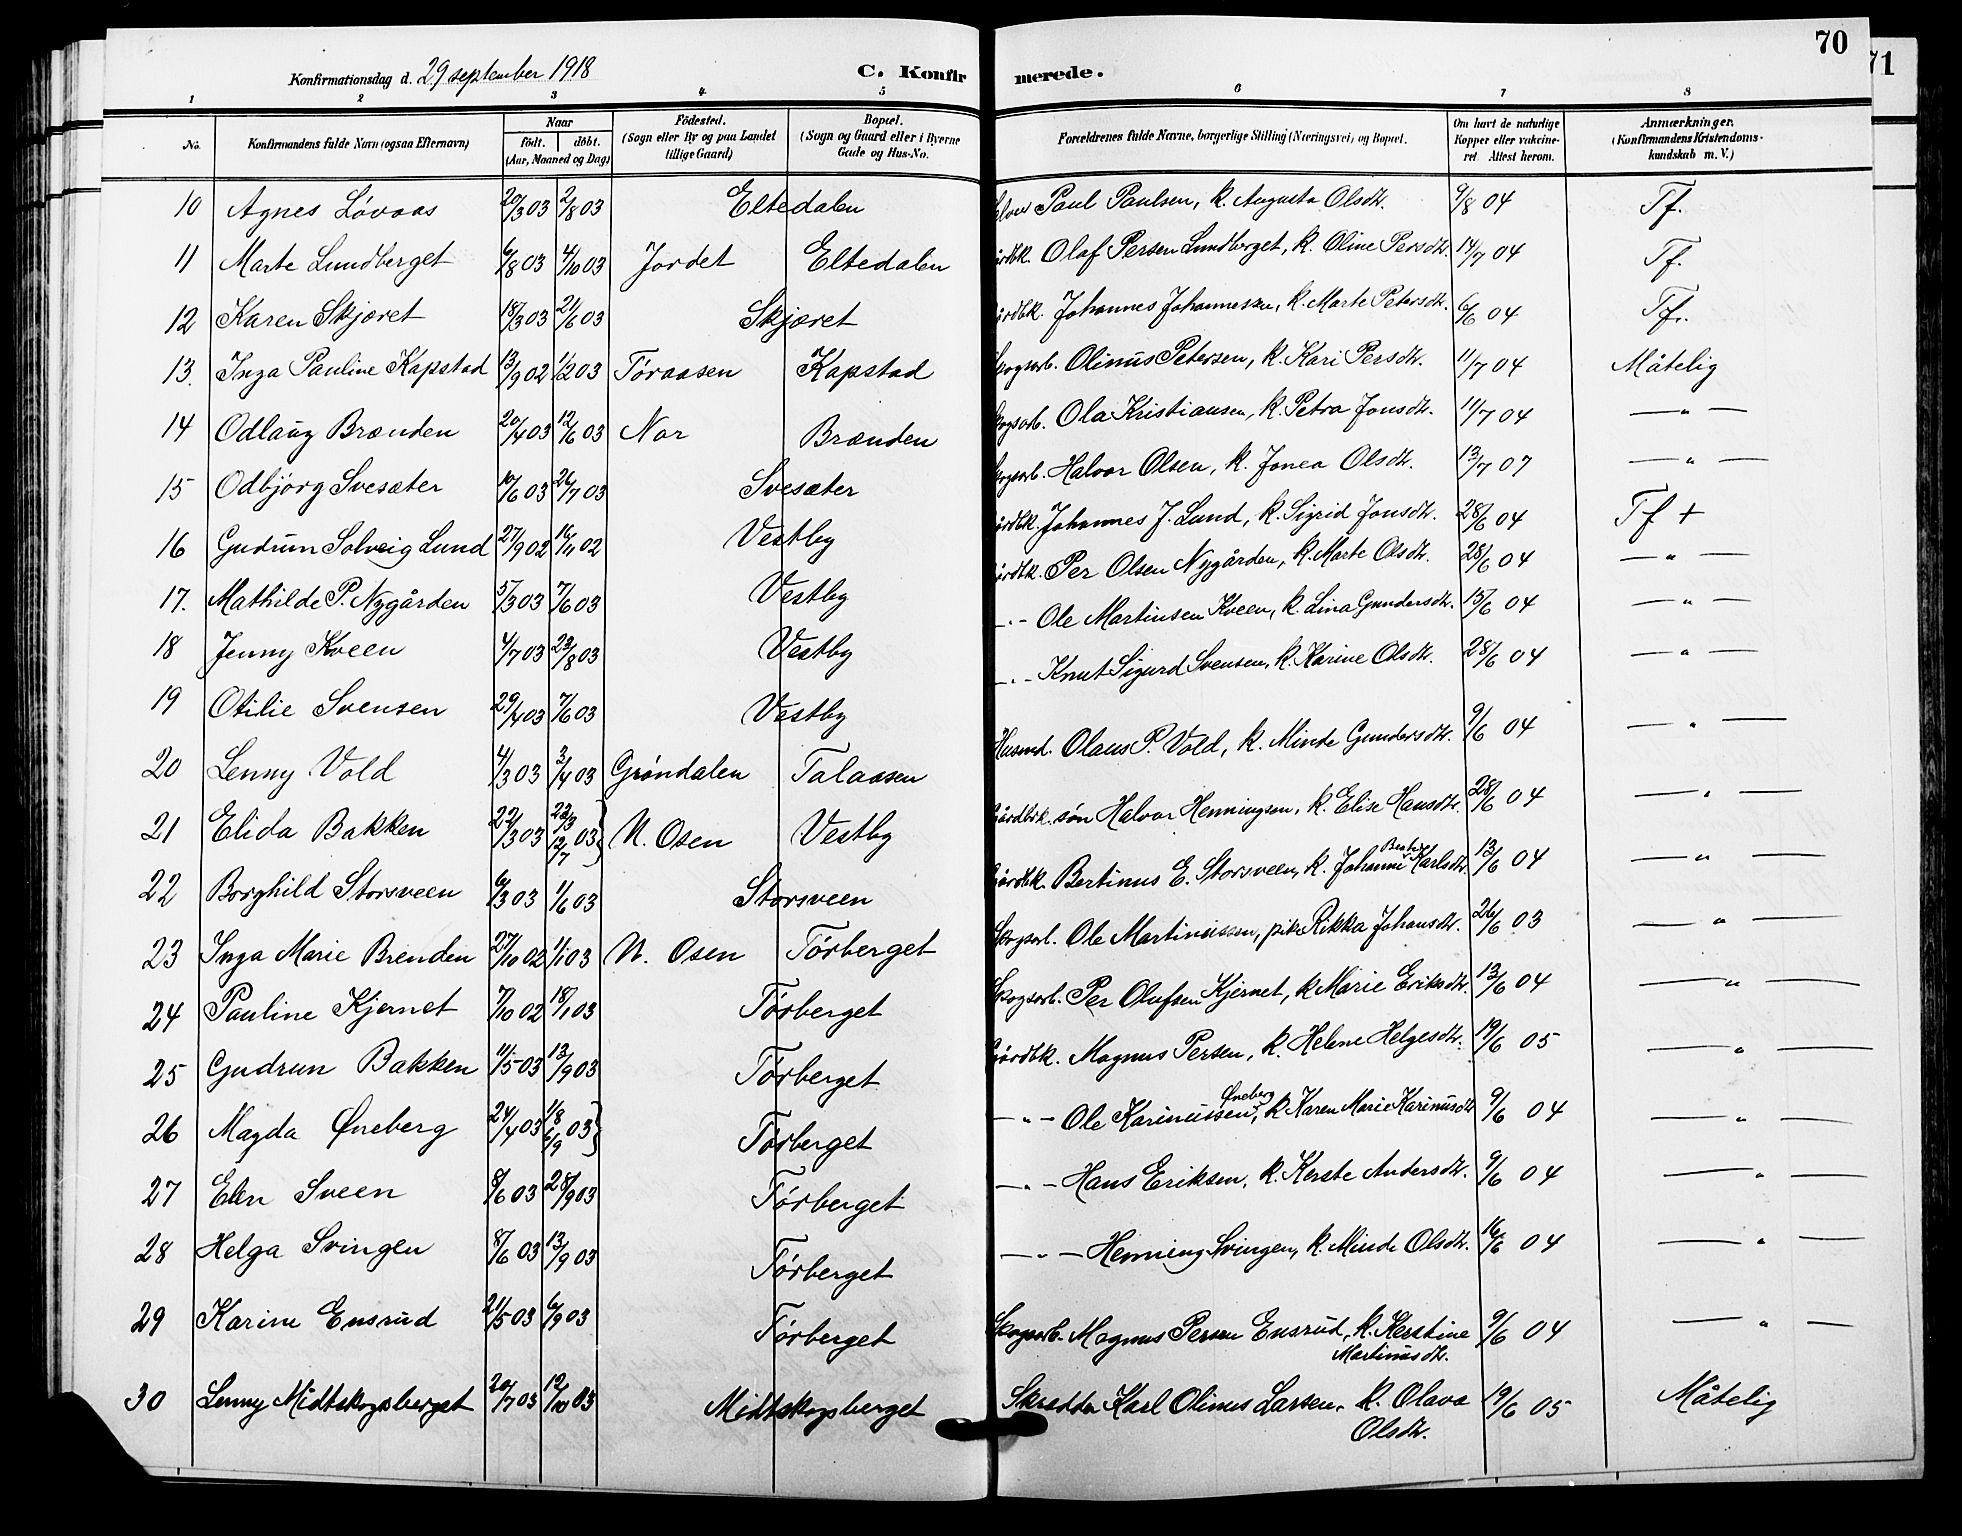 70
71
Konfirmationsdag d. 29 september 1918 C. Konfirmerede.
1 2 3 4 5 6 7 8
No. Konfirmandens fulde Navn (ogsaa Efternavn) Naar født. døbt. (Aar, Maaned og Dag) Fødested. (Sogn eller By og paa Landet tillige Gaard) Bopæl. (Sogn og Gaard eller i Byerne Gade og Hus-No. Forældrenes fulde Navne, borgerlige Stilling (Næringsvei) og Bopæl. Om havt de naturlige Kopper eller vakcineret Attest herom. Anmærkninger. (Konfirmandens Kristendomskundskab m. V.)
10 Agnes Lövaas 20/3 03 2/8 03 Eltedalen Paul Paulsen, k. Augusta Olsdtr. 9/8 04 Tf.
11 Marte Lundberget 6/8 03 4/10 03 Jordet Eltedalen Gårdbk. Olaf Persen Lundberget, k. Oline Persdtr. 14/7 04 Tf.
12 Karen Skjæret 18/3 03 21/6 03 Skjæret Gårdbk. Johannes Johannessen, k. Marte Petersdtr. 6/6 04 Tf.
13. Inga Pauline Kapstad 13/9 02 1/2 03 Töraasen Kapstad Skogsarb. Olinus Petersen, k. Kari Persdtr. 11/7 04 Måtelig
14 Odlaug Brænden 20/4 03 12/6 03 Nor Brænden Skogsarb. Ola Kristiansen, k. Petra Jonsdtr. 11/7 04 — " —
15 Odbjörg Svesæter 10/6 03 26/7 03 Svesæter Skogsarb. Halvor Olsen, k. Jonea Olsdtr. 13/7 07 — " —
16 Gudrun Solveig Lund 27/9 02 16/11 02 Vestby Gårdbk. Johannes J. Lund, k. Sigrid Jonsdtr. 28/6 04 Tf +
17. Mathilde P. Nygården 5/3 03 7/6 03 Vestby Gårdbk. Per Olsen Nygården, k. Marte Olsdtr. 28/6 04 — " —
18 Jenny Kveen 4/7 03 23/8 03 Vestby — " — Ole Martinsen Kveen, k. Lina Gundersdtr. 15/6 04 — " —
19 Otilie Svensen 29/4 03 7/6 03 Vestby — " — Knut Sigurd Svensen, k. Karine Olsdtr. 28/6 04 — " —
20 Lenny Vold 4/3 03 3/4 03 Gröndalen Talaasen Husmd. Olaus P. Vold, k. Minde Gundersdtr. 9/6 04 — " —
21 Elida Bakken 22/3 03 22/3 12/7 03 N. Osen Vestby Gårdbrk. søn Halvor Henningsen, k. Elise Hansdtr. 28/6 04 — " —
22 Borghild Storsveen 6/3 03 1/6 03 Storsveen Gårdbk. Bertinus E. Storsveen, k. Johanne Karlsdtr. 13/6 04 — " —
23 Inga Marie Brenden 27/10 02 1/1 03 N. Osen Törberget Skogsarb. Ole Martinussen, pike Rikka Johansdtr. 26/6 03 — " —
24 Pauline Kjernet 7/10 02 18/1 03 Törberget Skogsarb. Per Olufsen Kjernet, k Marie Eriksdtr. 13/6 04 — " —
25 Gudrun Bakken 11/5 03 13/9 03 Törberget Gårdbk. Magnus Persen, k. Helene Helgesdtr. 19/6 05 — " —
26 Magda Øneberg 24/4 03 1/8 6/9 03 Törberget — " — Ole Karinussen Øneberg, k. Karen Marie Karinusdtr 9/6 04 — " —
27 Elen Sveen 8/6 03 28/9 03 Törberget — " — Hans Eriksen, k. Kerste Andersdtr. 9/6 04 — " —
28 Helga Svingen 8/6 03 13/9 03 Törberget — " — Henning Svingen, k. Minda Olsdtr. 16/6 04 — " —
29 Karine Ensrud 21/5 03 6/9 03 Törberget Skogsarb. Magnus Persen Ensrud, k. Kerstine Martinusdtr. 9/6 04 — " —
30 Lenny Midtskogsberget 20/7 03 12/10 03 Midtskogsberget Skrædder Karl Olinus Larsen, k. Olava Olsdtr. 19/6 05 Måtelig